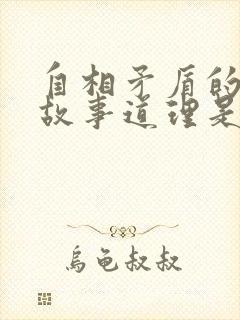 自相矛盾的
故事道理是
烏龜叔叔